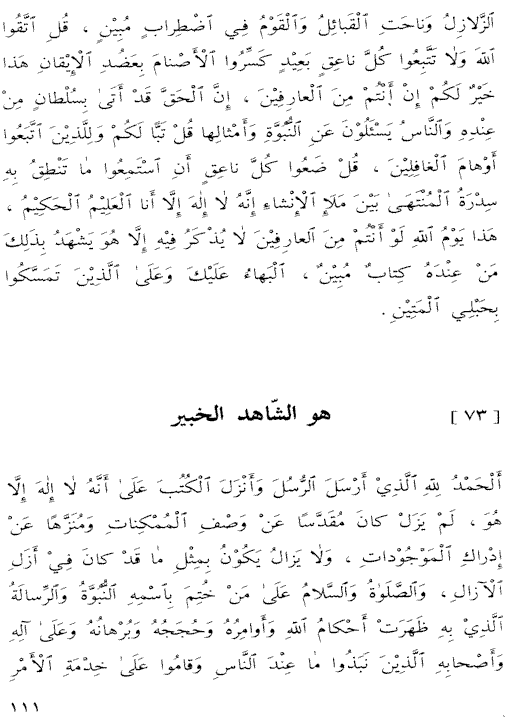 ٱلزَّلازِلُ وَناحَتِ ٱلْقَبائِلُ وَٱلْقَوْمُ فِي ٱضْطِرابٍ مُبِيْنٍ ، قُلِ ٱتَّقُوا
ٱللهَ وَلا تَتَّبِعُوا كُلَّ ناعِقٍ بَعِيْدٍ كَسِّرُوا ٱلْأَصْنامَ بِعَضُدِ ٱلْإِيْقانِ هَذا
خَيْرٌ لَكُمْ إِنْ أَنْتُمْ مِنَ ٱلْعارِفِيْنَ ، إِنَّ ٱلْحَقَّ قَدْ أَتَىٰ بِسُلْطانٍ مِنْ
عِنْدِهِ وَٱلنَّاسُ يَسْئَلُوْنَ عَنِ ٱلنُّبُوَّةِ وَأَمْثالِها قُلْ تَبًّا لَكُمْ وَلِلَّذِيْنَ ٱتَّبَعُوا
أَوْهامَ ٱلْغافِلِيْنَ ، قُلْ ضَعُوا كُلَّ ناعِقٍ أَنِ ٱسْتَمِعُوا مٰا تَنْطِقُ بِهِ
سِدْرَةُ ٱلْمُنْتَهَىٰ بَيْنَ مَلَإِ ٱلْإِنْشاءِ إِنَّهُ لٰا إِلٰهَ إِلَّا أَنا ٱلْعَلِيْمُ ٱلْحَكِيْمُ ،
هَذا يَوْمُ ٱللهِ لَوْ أَنْتُمْ مِنَ ٱلعارِفِيْنَ لٰا يُذْكَرُ فِيْهِ إِلَّا هُوَ يَشْهَدُ بِذَلِكَ
مَنْ عِنْدَهُ كِتابٌ مُبِيْنٌ ، ٱلْبَهاءُ عَلَيْكَ وَعَلَىٰ ٱلَّذِيْنَ تَمَسَّكُوا
بِحَبْلِي ٱلْمَتِيْنِ .
[ ٧٣ ] هو الشّاهد الخبير
أَلْحَمْدُ لِلّٰهِ ٱلَّذِيْ أَرْسَلَ ٱلرُّسُلَ وَأَنْزَلَ ٱلْكُتُبَ عَلَىٰ أَنَّهُ لٰا إِلٰهَ إِلَّا
هُوَ ، لَمْ يَزَلْ كانَ مُقَدَّسًا عَنْ وَصْفِ ٱلْمُمْكِناتِ وَمُنَزَّهًا عَنْ
إِدْراكِ ٱلْمَوْجُوداتِ ، وَلا يَزالُ يَكُوْنُ بِمِثْلِ مٰا قَدْ كانَ فِيْ أَزَلِ
ٱلْآزالِ، وَٱلصَّلَوٰةُ وَٱلسَّلامُ عَلَىٰ مَنْ خُتِمَ بِٱسْمِهِ ٱلنُّبُوَّةُ وَٱلرِّسالَةُ
ٱلَّذِيْ بِهِ ظَهَرَتْ أَحْكامُ ٱللهِ وَأَوامِرُهُ وَحُجَجُهُ وَبُرْهانُهُ وَعَلَىٰ آلِهِ
وَأَصْحابِهِ ٱلَّذِيْنَ نَبَذُوا مٰا عِنْدَ ٱلنَّاسِ وَقامُوا عَلَىٰ خِدْمَةِ ٱلْأَمْرِ
١١١